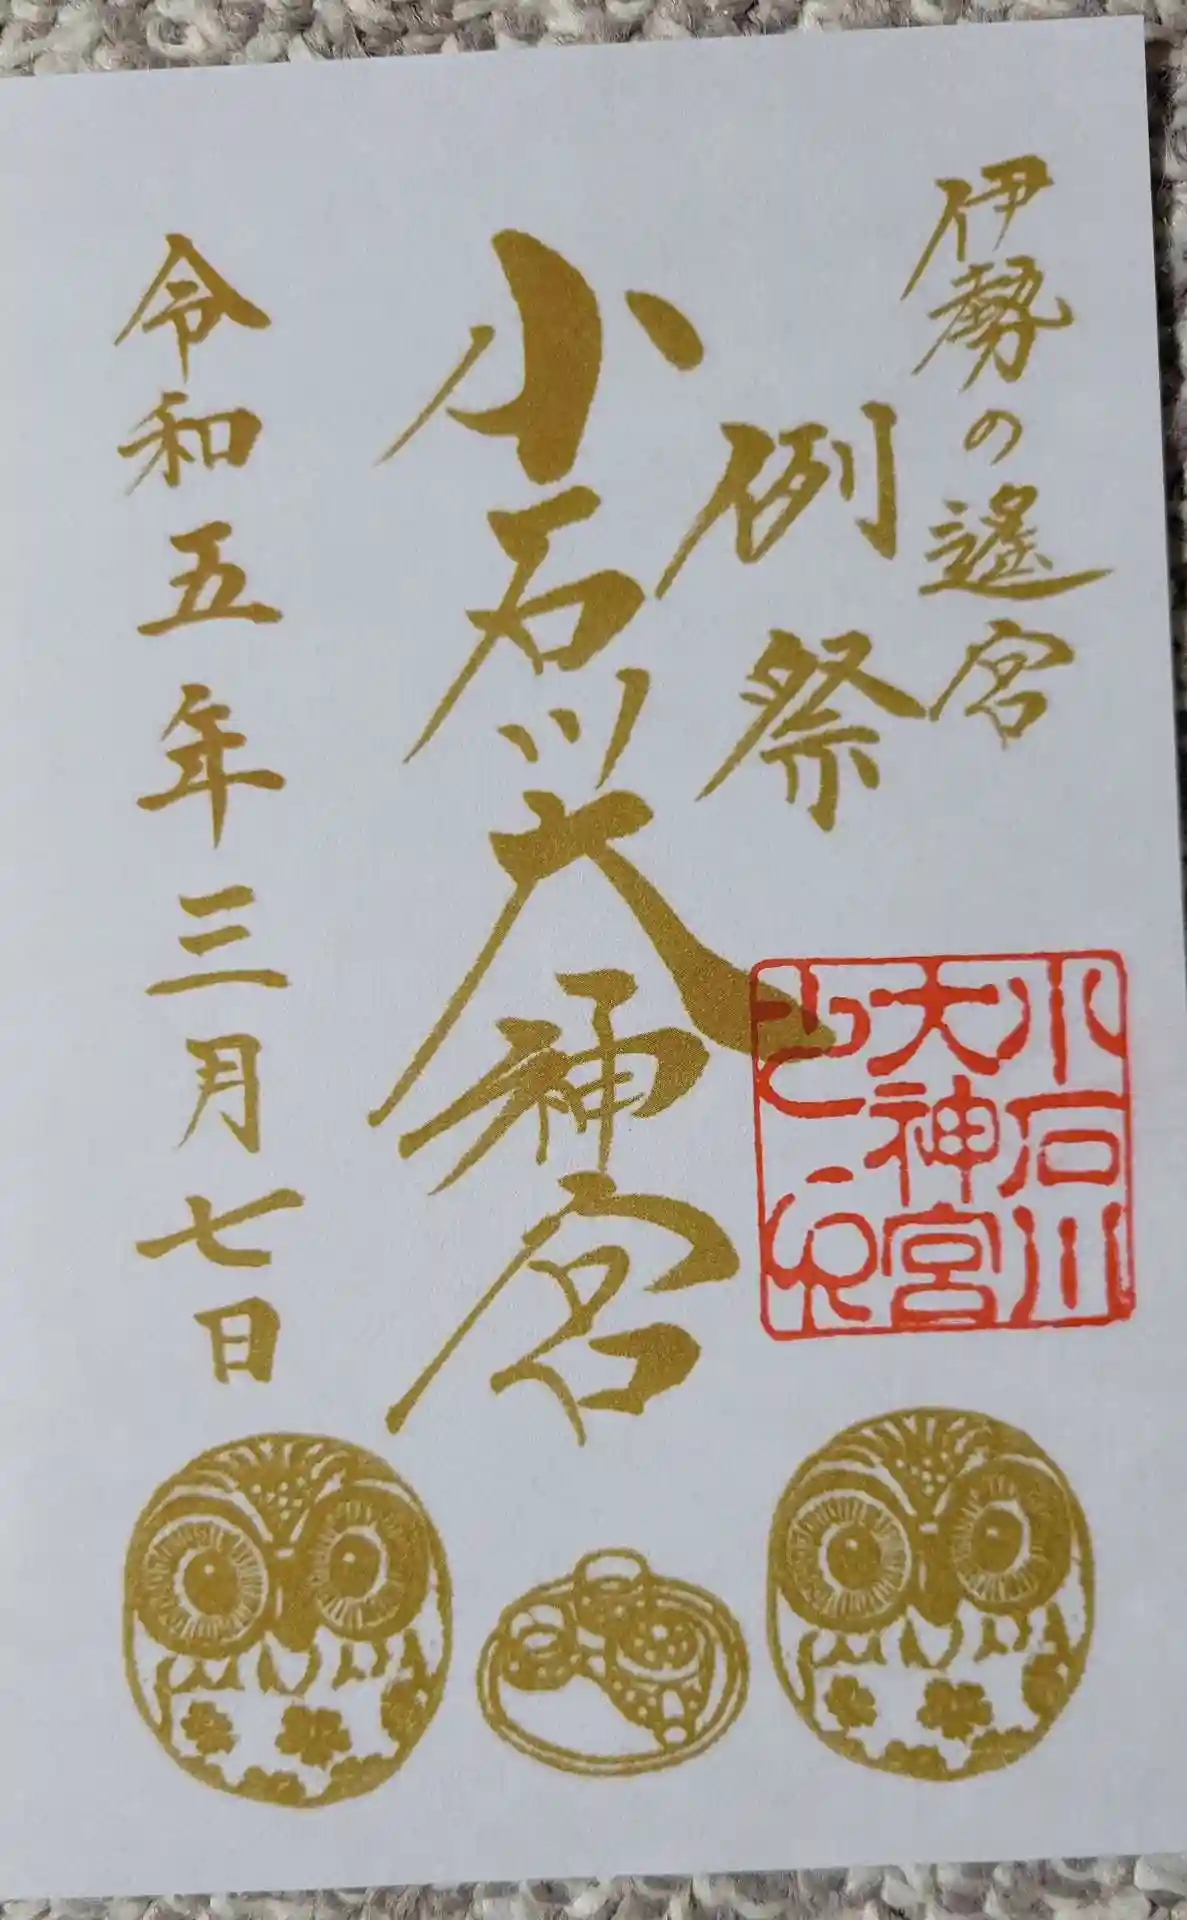 伊勢の遙宮
例祭
小石川大神宮
令和五年三月七日
小石川
大神宮
之印